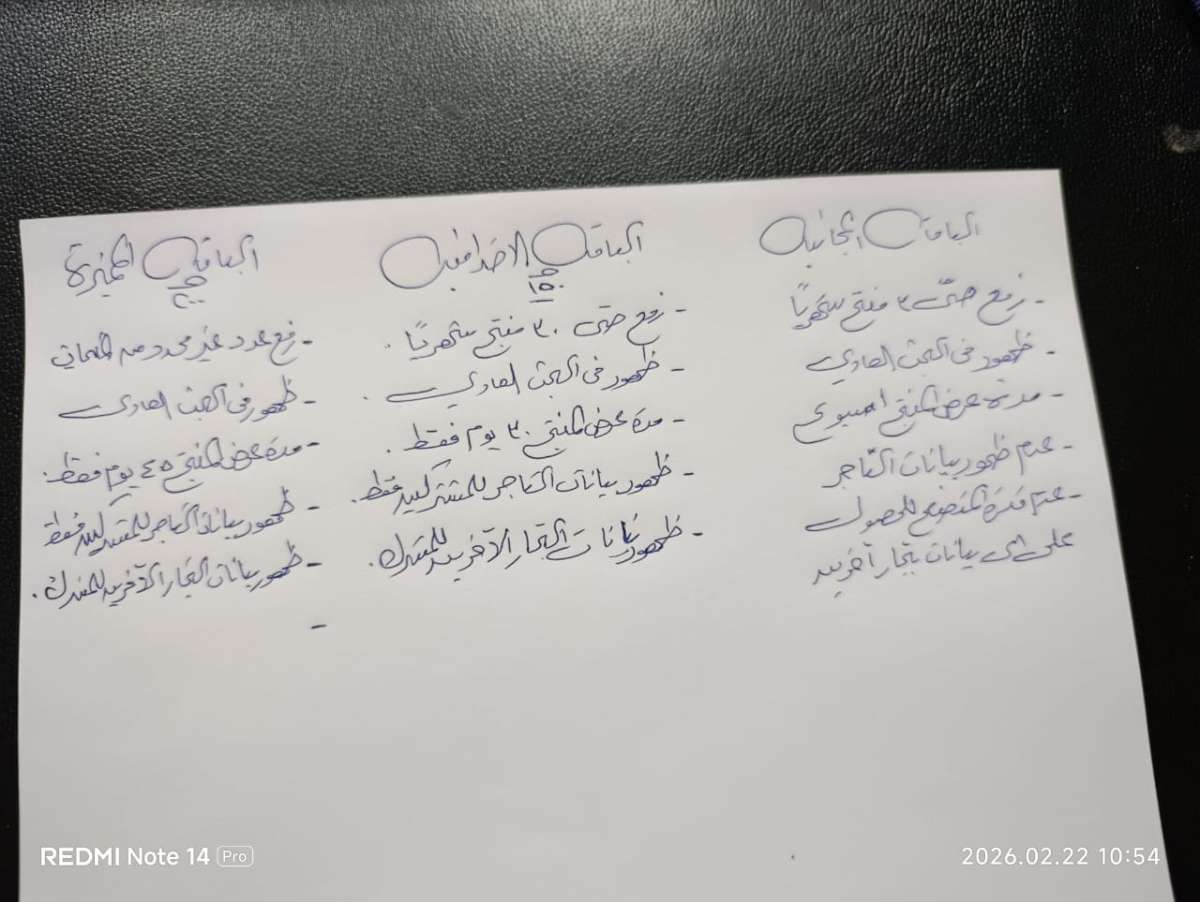 الباقة المجانية
- رفع حتى ٣ منتج شهريًا
- ظهور فى البحث العادي
- مدة عرض المنتج اسبوع
- عدم ظهور بيانات التاجر
- عدم قدرة المتصفح للحصول
على اى بيانات تجار آخرين
الباقة الاحترافية
١٥٠
- رفع حتى ٣٠ منتج شهريًا .
- ظهور فى البحث العادي .
- مدة عرض المنتج ٣٠ يوم فقط .
- ظهور بيانات التاجر للمشتركين فقط .
- ظهور بيانات التجار الآخرين للمشترك .
الباقة المميزة
٢٠٠
- رفع عدد غير محدود من
- ظهور فى البحث العادى
- مدة عرض المنتج ٤٥ يوم فقط .
- ظهور بيانات التاجر للمشتركين فقط
- ظهور بيانات التجار الآخرين للمشترك .
-
REDMI Note 14 Pro
2026.02.22 10:54